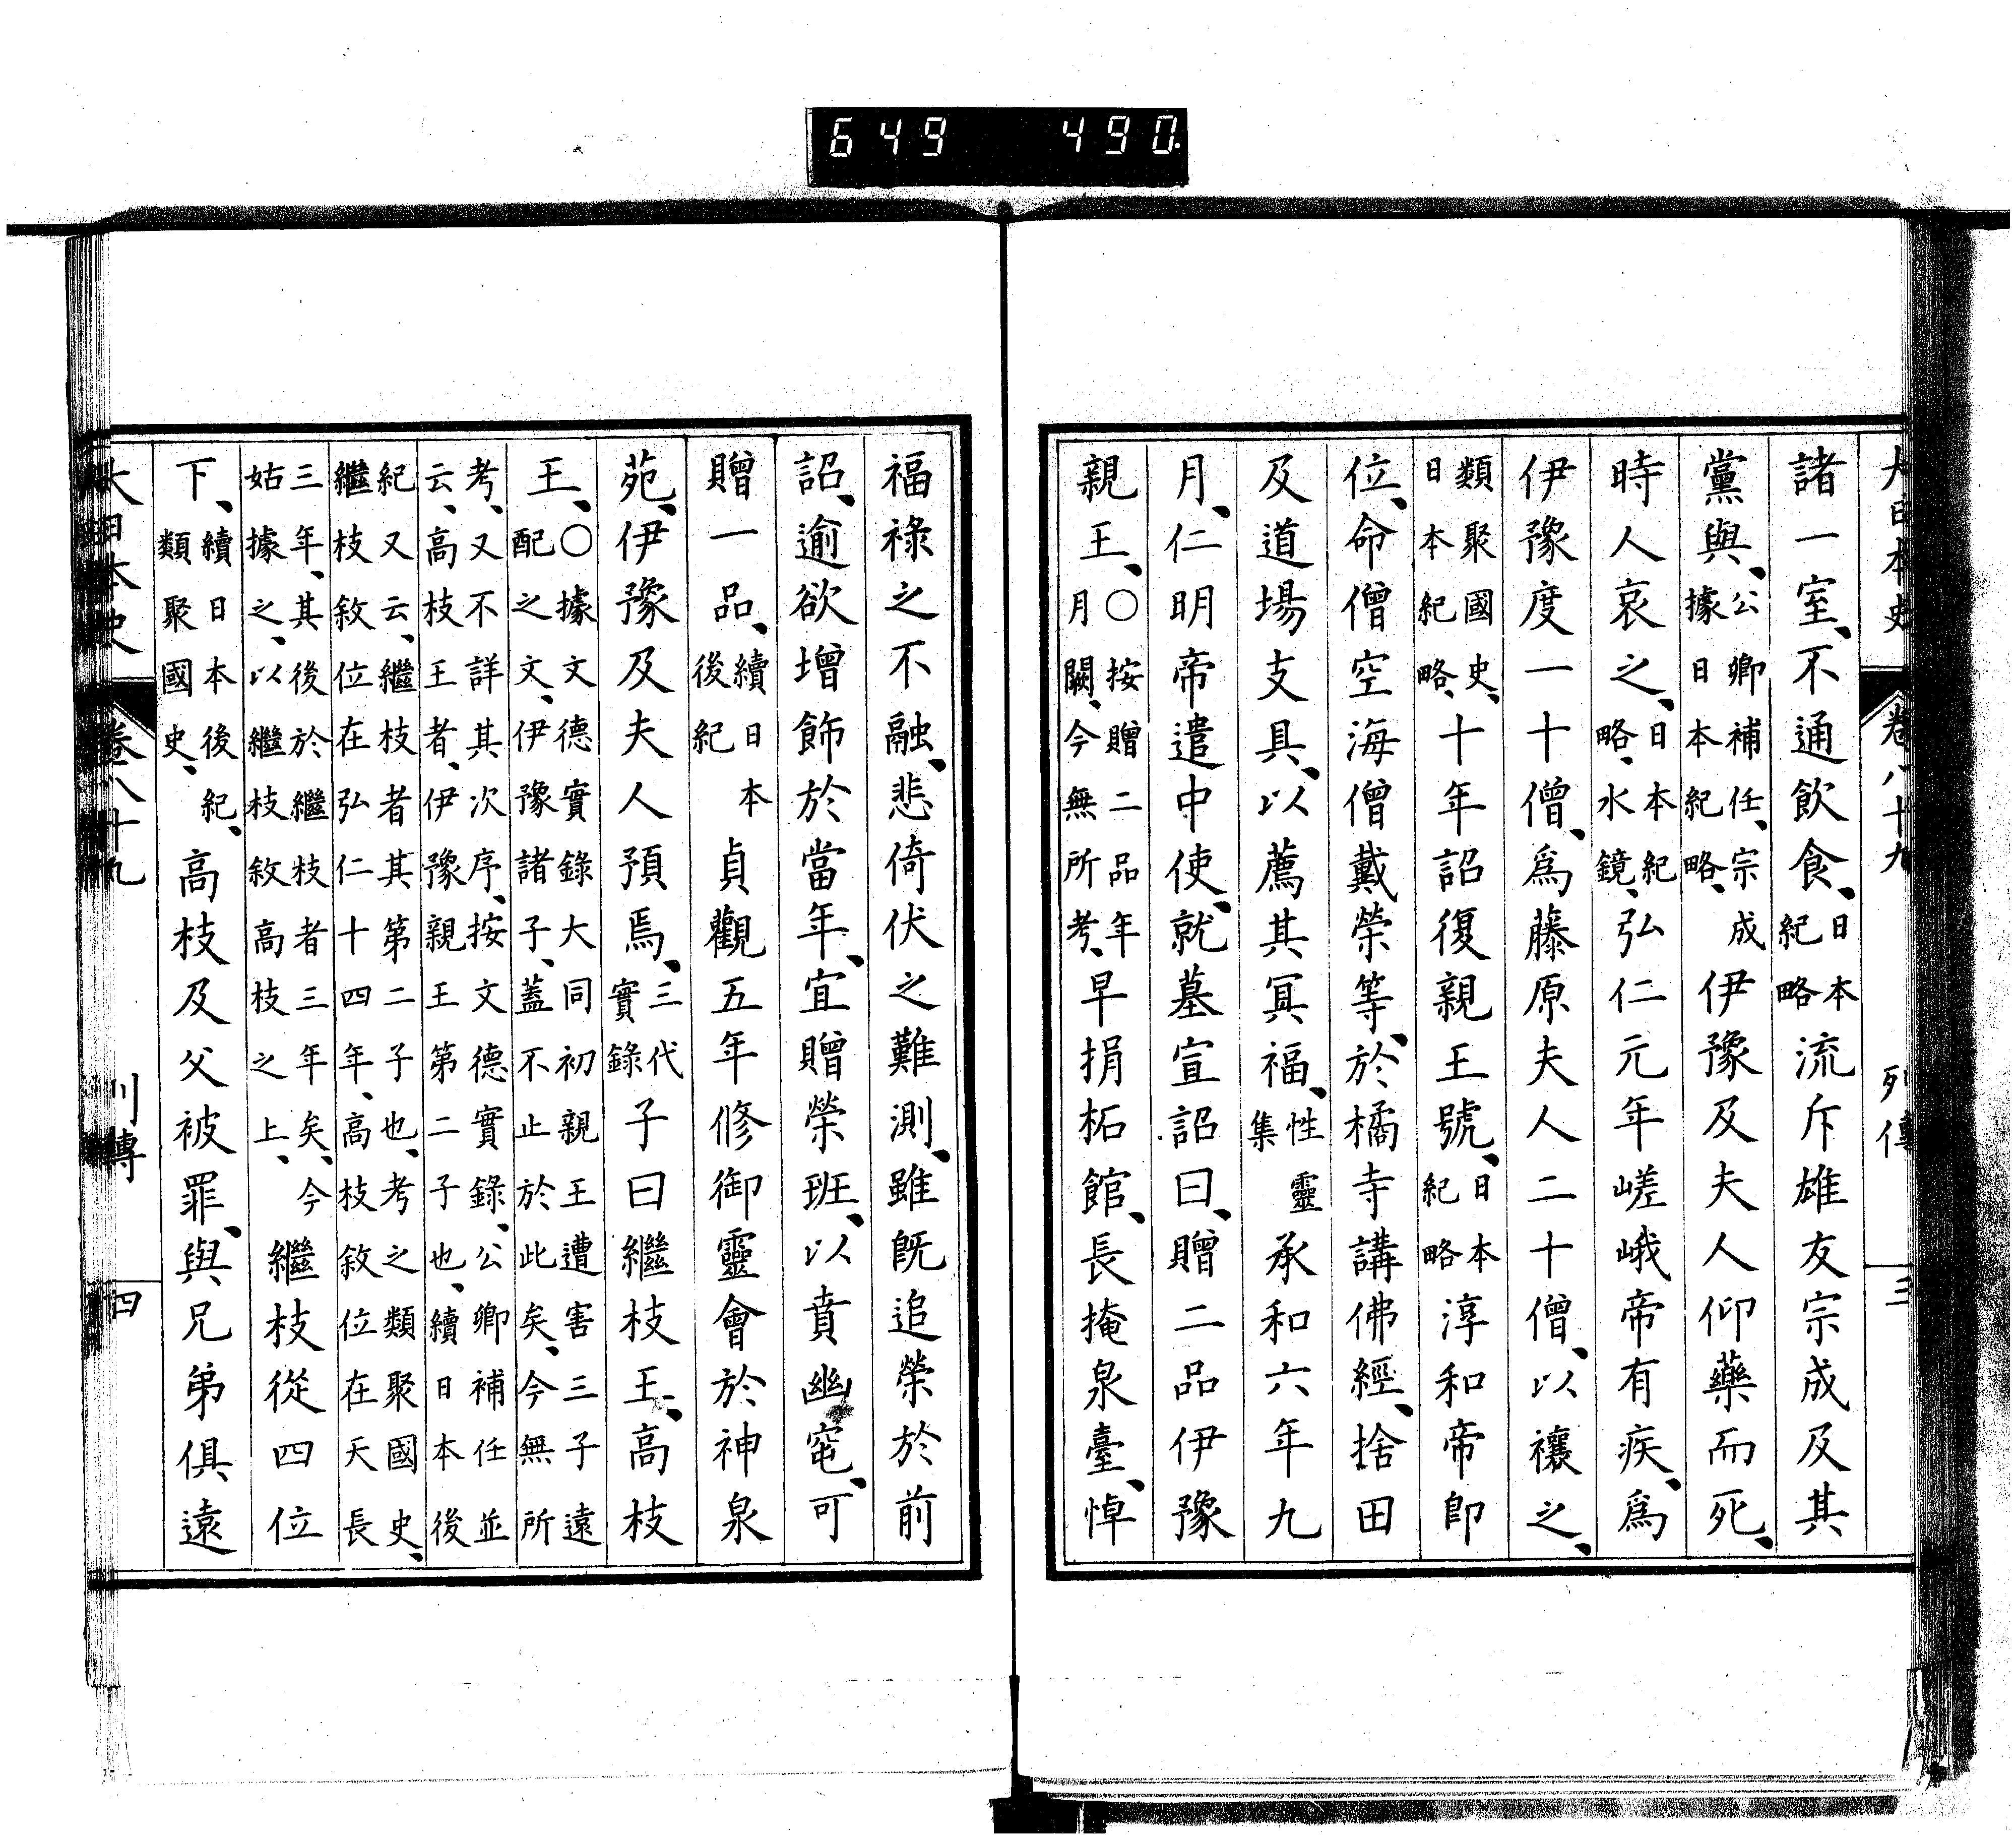 649 490.
大日本史 卷八十九 列傳 三
諸一室、不通飲食、日本紀略流斥雄友宗成及其
黨與、公卿補任、宗成據日本紀略、伊豫及夫人仰藥而死、
時人哀之、日本紀略、水鏡、弘仁元年嵯峨帝有疾、爲
伊豫度一十僧、爲藤原夫人二十僧、以禳之、
類聚國史、日本紀略、十年詔復親王號、日本紀略淳和帝即
位、命僧空海僧戴榮等、於橘寺講佛經、捨田
及道場支具、以薦其冥福、性靈集承和六年九
月、仁明帝遣中使、就墓宣詔曰、贈二品伊豫
親王、○按贈二品年月闕、今無所考、早捐柘館、長掩泉臺、悼
福祿之不融、悲倚伏之難測、雖旣追榮於前
詔、逾欲增飾於當年、宜贈榮班、以賁幽窀、可
贈一品、續日本後紀貞觀五年修御靈會於神泉
苑、伊豫及夫人預焉、三代實錄子曰繼枝王、高枝
王、○據文德實錄大同初親王遭害三子遠配之文、伊豫諸子、蓋不止於此矣、今無所
考、又不詳其次序、按文德實錄、公卿補任並云、高枝王者、伊豫親王第二子也、續日本後
紀又云、繼枝者其第二子也、考之類聚國史、繼枝敘位在弘仁十四年、高枝敘位在天長
三年、其後於繼枝者三年矣、今姑據之、以繼枝敘高枝之上、繼枝從四位
下、續日本後紀、類聚國史、高枝及父被罪、與兄弟俱遠
大日本史 卷八十九 列傳 四